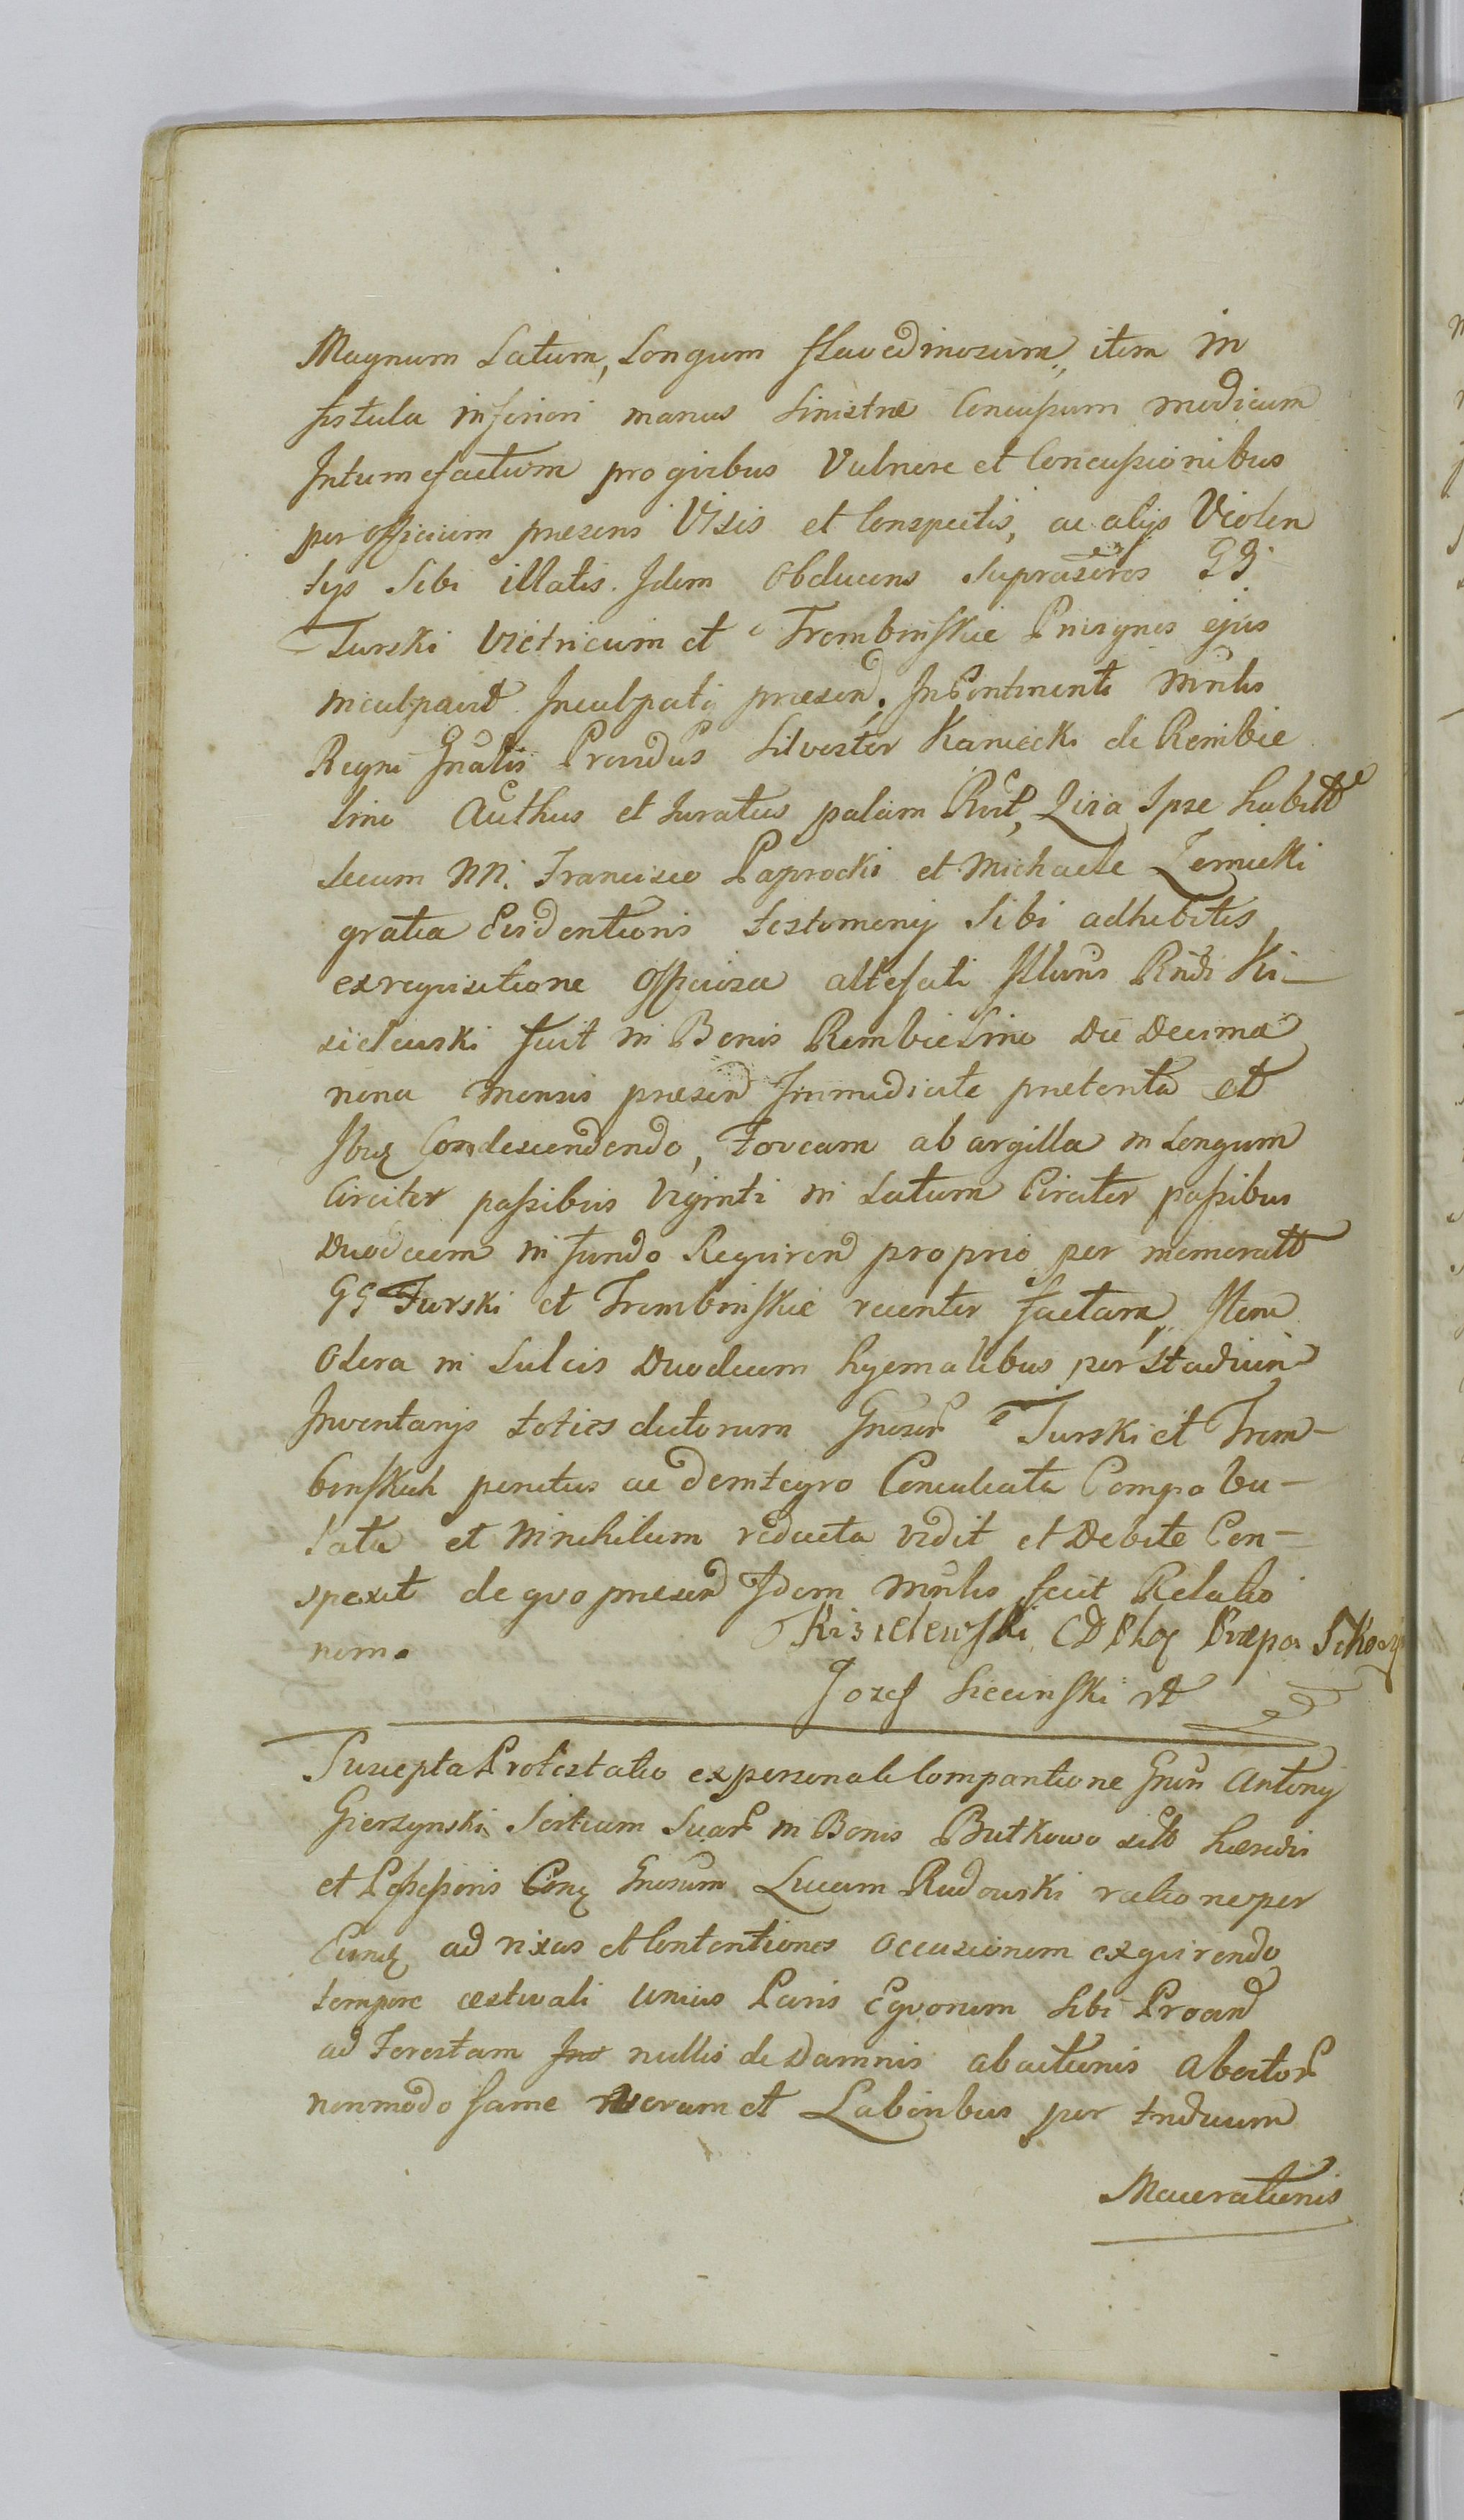 Magnum Latum, Longum flavedinosum, item in
fistula inferiori manus Sinistræ Concussum modicum
Intumefactum pro quibus Vulnere et Concussionibus
per officium præsens Visis et Conspectis, ac alijs Violen
tijs Sibi illatis. Idem Obducens Suprascrtos GG
Turski Victricum et Trembinskie Privignos ejus
inculpavit Inculpatq præsen. In Continenti Minlis
Regni Gnalis Providus Silvester Kaniecki de Rembie
lino Authus et Juratus palam Rlt, Quia Ipse habitt
secum NN. Francisco Paprocki et Michaele Zemielki
gratia Evidentioris testimonij Sibi adhibitis
ex requisitione Officiosa attefati Illuns Rndi Ki-
sielewski fuit in Bonis Rembielino Die Decima
nona mensis præsen Immediate præterita et
Ibiq Condescendendo, Foveam ab argilla in Longum
Circiter passibus Viginti in Latum Circiter passibus
Duodecem in fundo Requiren proprio per memoratt
GG Turski et Trembinskie recenter factam, Item
Olera in Sulcis Duodecem hyemalibus per Stadium
Inventarijs toties dictorum Gnosor Turski et Trem-
binskich penitus ac deintegro Conculcata Compabu-
lata et In nichilum redacta vidit et Debite Con-
spexit de quo præsen Idem Minlis fecit Relatio
nem.
Kisielewski CDPloz Præpos
Jozef Siecinski
Suscepta Protestatio ex personali Comparitione Gnsi Antonij
Gierzynski Sortium Suar in Bonis Butkowo sitt hæredis
et Possessoris Conq Gnosum Lucam Rudowski ratione per
Eunq ad rixas et Contentiones Occasionem exquirendo
tempore æstivali unius Paris Equorum Sibi Proan
ad Forestam nullis de Damnis abactionis Abactor
non modo fame verum et Laboribus per triduum
Macerationis